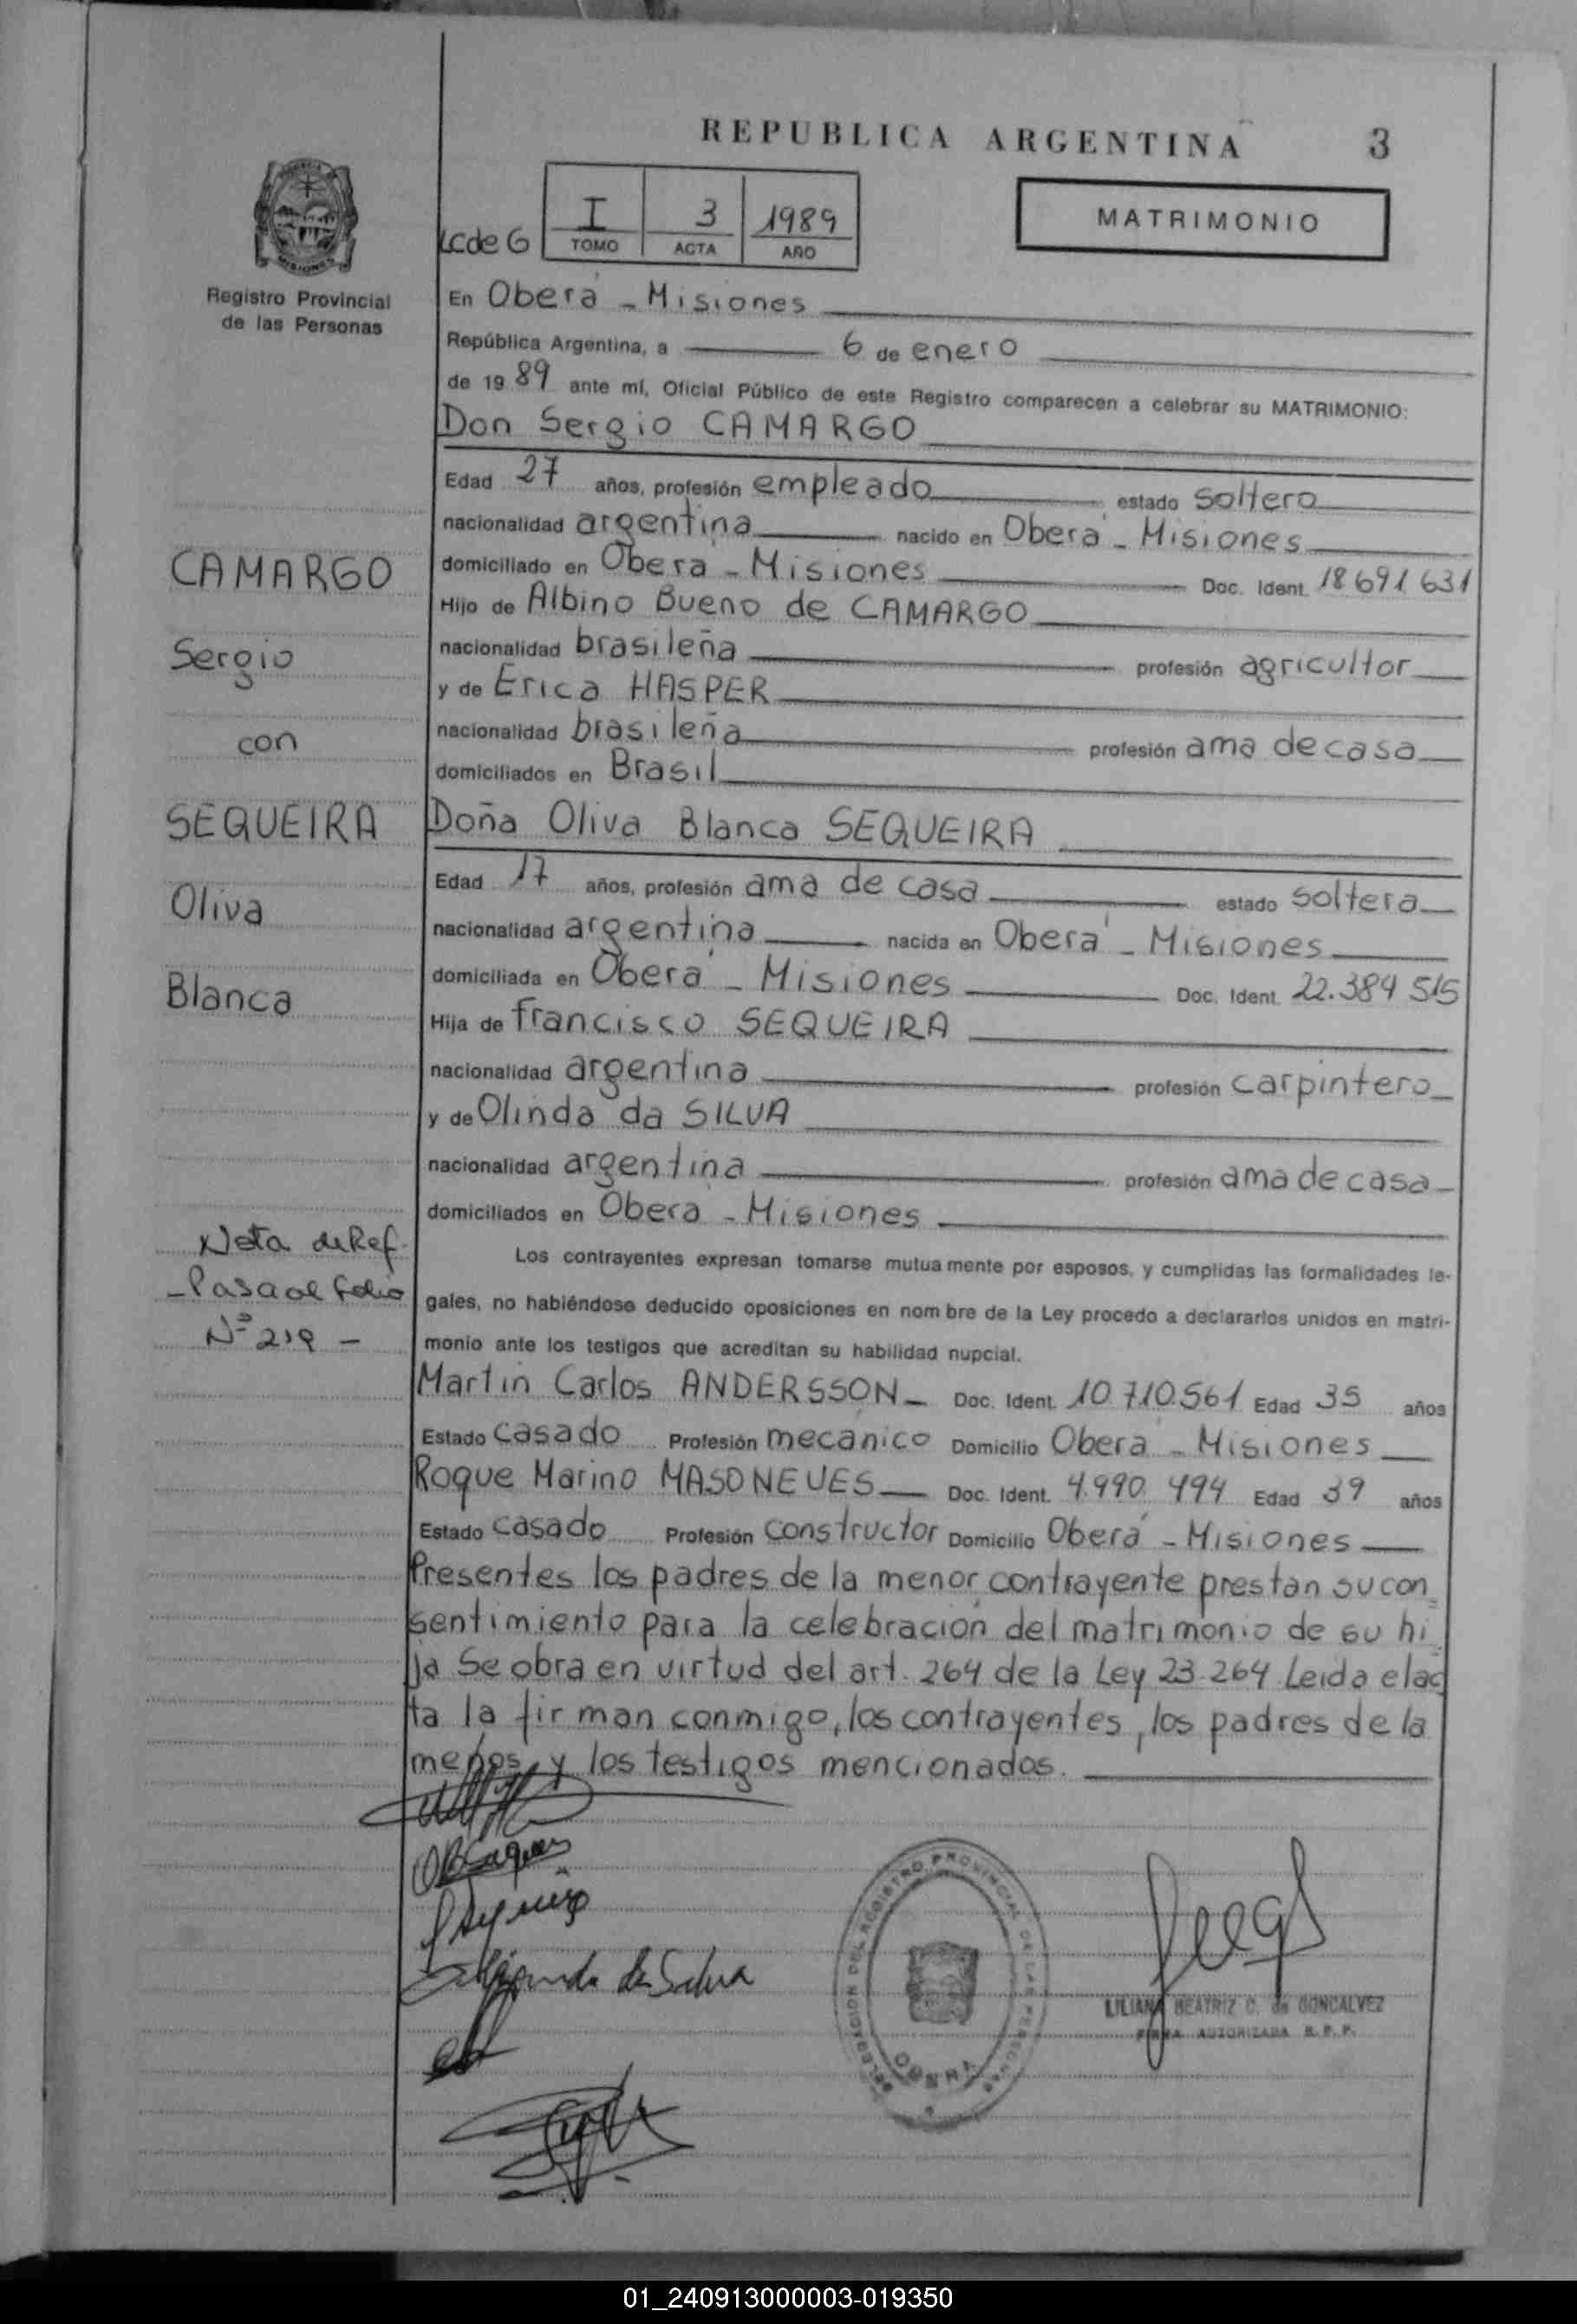 REPUBLICA ARGENTINA 3
MATRIMONIO
I 3 1989
TOMO ACTA AÑO
Registro Provincial
de las Personas
En Oberá - Misiones
República Argentina, a 6 de enero
de 1989 ante mí, Oficial Público de este Registro comparecen a celebrar su MATRIMONIO:
Don Sergio CAMARGO
Edad 27 años, profesión empleado estado soltero
nacionalidad argentina nacido en Oberá - Misiones
domiciliado en Oberá - Misiones Doc. Ident. 18.691.631
Hijo de Albino Bueno de CAMARGO
nacionalidad brasileña profesión agricultor
y de Erica HASPER
nacionalidad brasileña profesión ama de casa
domiciliados en Brasil
Doña Oliva Blanca SEQUEIRA
Edad 17 años, profesión ama de casa estado soltera
nacionalidad argentina nacida en Oberá - Misiones
domiciliada en Oberá - Misiones Doc. Ident. 22.384 515
Hija de Francisco SEQUEIRA
nacionalidad argentina profesión carpintero
y de Olinda da SILVA
nacionalidad argentina profesión ama de casa
domiciliados en Oberá - Misiones
Los contrayentes expresan tomarse mutuamente por esposos, y cumplidas las formalidades le-
gales, no habiéndose deducido oposiciones en nombre de la Ley procedo a declararlos unidos en matri-
monio ante los testigos que acreditan su habilidad nupcial.
Martin Carlos ANDERSSON - Doc. Ident. 10.710.561 Edad 35 años
Estado casado Profesión mecánico Domicilio Oberá - Misiones
Roque Marino MASONEVES Doc. Ident. 4.990.494 Edad 39 años
Estado casado Profesión constructor Domicilio Oberá - Misiones
Presentes los padres de la menor contrayente prestan su con
sentimiento para la celebración del matrimonio de su hi
ja Se obra en virtud del art. 264 de la Ley 23.264 Leida el ac
ta la firman conmigo, los contrayentes, los padres de la
menor y los testigos mencionados.
CAMARGO
Sergio
con
SEQUEIRA
Oliva
Blanca
Nota de Ref.
- Pasa al folio
Nº 219 -
da Silva
DELEGACION DEL REGISTRO PROVINCIAL DE LAS PERSONAS
OBERA
LILIANA BEATRIZ C. de GONCALVEZ
FIRMA AUTORIZADA R. P. P.
01_240913000003-019350